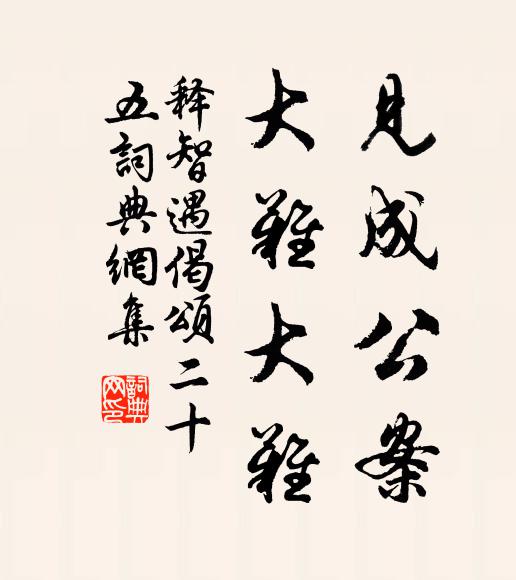 見成公案
大難大難
释智遇偈頌二十
五詞典網集
詞典
网印